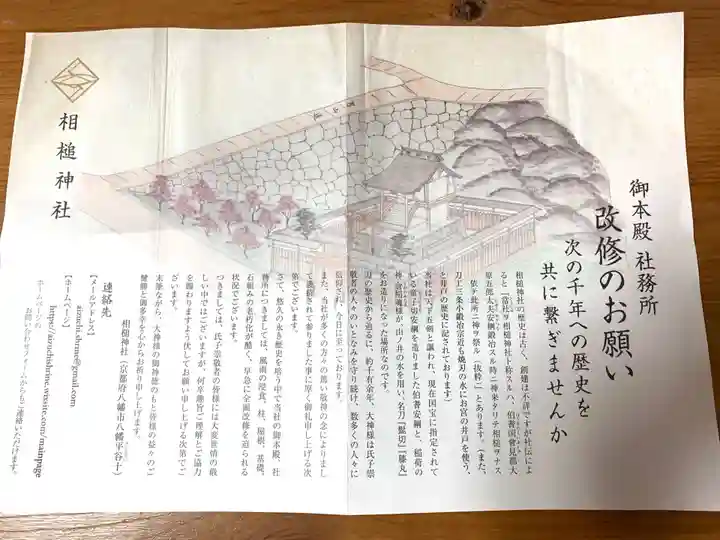 御本殿 社務所
改修のお願い
次の千年への歴史を
共に繋ぎませんか
相槌神社の歴史は古く、創建は不詳ですが社伝によ
ると『當社ヲ相槌神社ト称スルハ、伯耆国會見郡大
原五郎太夫安綱鍛冶スル時ニ神来タリテ相槌ヲナス
依テ此所ニ神ヲ祭ル（抜粋）』とあります。（また、
刀工三条小鍛冶宗近も焼刃の水にお宮の井戸を使う、
と井戸の歴史に記されております）
当社は天下五剣と謳われ、現在国宝に指定されて
いる童子切安綱を造りました伯耆安綱と、稲荷の
神、倉稲魂様が、山ノ井の水を用い、名刀『髭切』『膝丸』
をお造りになった場所なのです。
刀の歴史から遡るに、約千有余年、大神様は氏子崇
敬者の人々のいとなみを守り続け、数多くの人々に
信仰され、今日に至っております。
また、当社が多くの方々の篤い敬神の念によりまし
て護持されて参りました事に厚く御礼申し上げる次
第でございます。
さて、悠久の永き歴史を培う中で当社の御本殿、社
務所につきましては、風雨の浸食、柱、屋根、基礎、
石組みの老朽化が酷く、早急に全面改修を迫られる
状況でございます。
つきましては、氏子崇敬者の皆様には大変世情の厳
しい中ではございますが、何卒趣旨ご理解とご協力
を賜わりますよう伏してお願い申し上げる次第でご
ざいます。
末筆ながら、大神様の御神徳のもと皆様の益々のご
健勝と御多幸を心からお祈り申し上げます。
相槌神社（京都府八幡市八幡平谷十）
連絡先
【メールアドレス】
aizuchi.shrine@gmail.com
【ホームページ】
https://aizuchishrine.wixsite.com/mainpage
ホームページの
お問い合わせフォームからもご連絡いただけます。
相槌神社